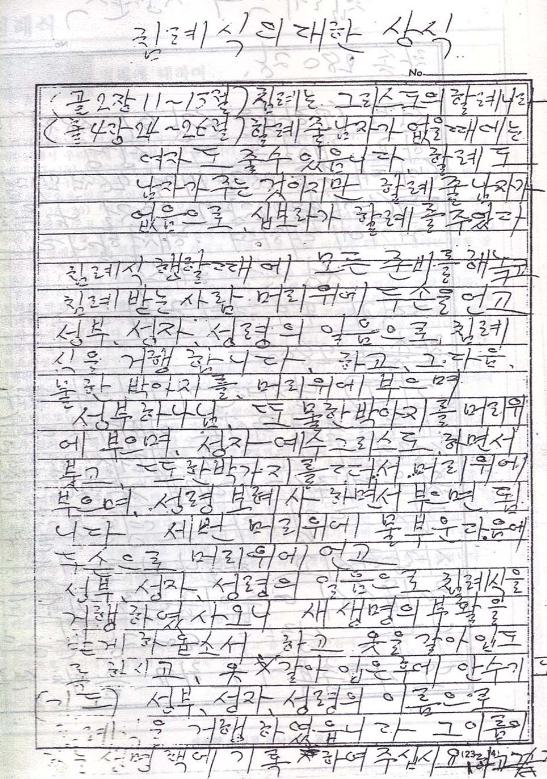 침례식의대한 상식
No.
(골2장11~15절) 침례는 그리스도의할례니라
(출4장24~26절)할례줄남자가 없을때에는
여자도 줄수 있읍니다. 할례도
남자가주는것이지만 할례줄남자가
없음으로, 십보라가 할례를주었다
침례식행할때에 모든준비를해놓고
침례받는사람 머리위에 두손을언고
성부, 성자, 성령의 일음으로, 침례
식을 거행합니다, 하고, 그다음,
물한 박아지를, 머리위에 부으며
성부하나님, 또 물한박아지를머리위
에 부으며, 성자예수그리스도, 하면서
붓고, 또한박가지를 떠서 머리위에
부으며, 성령보혜사 하면서부으면 됩
니다 세번 머리위에 물부운다음에
두손으로 머리위에 언고
성부, 성자, 성령의 일음으로 침례식을
거행하였사오니 새생명의부활을
하옵소서 하고 옷을갈아입도
록 하시고, 옷 갈아입은후에 안수기
(기도) 성부, 성자, 성령의 이름으로
침례식을 거행하였읍니다 그이름이
생명책에 기록 하여주십시요